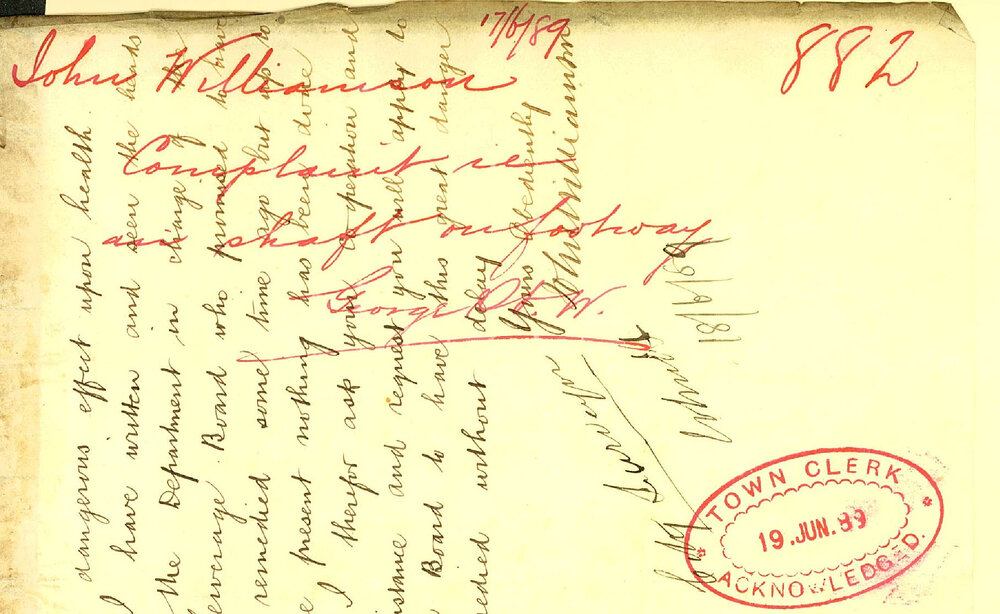 17/6/89
John Williamson
882
Complaint re
air shaft on footway
George St. W.
dangerous effect upon health.
I have written and seen the heads
the Department in charge of the
ewerage Board who promised to have
remedied some time ago but up to
e present nothing has been done
I therefor ask you to petition and
istance and request you will apply to
Board to have this great danger
edied without delay
Yours obediently
John Williamson
Surveyor
18/6/89
TOWN CLERK
19. JUN. 89
ACKNOWLEDGED.